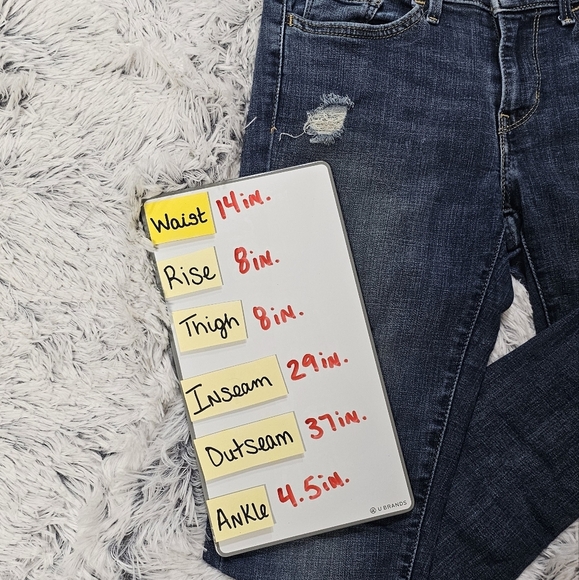 Waist 14 in.
Rise 8 in.
Thigh 8 in.
Inseam 29 in.
Outseam 37 in.
Ankle 4.5 in.
U BRANDS